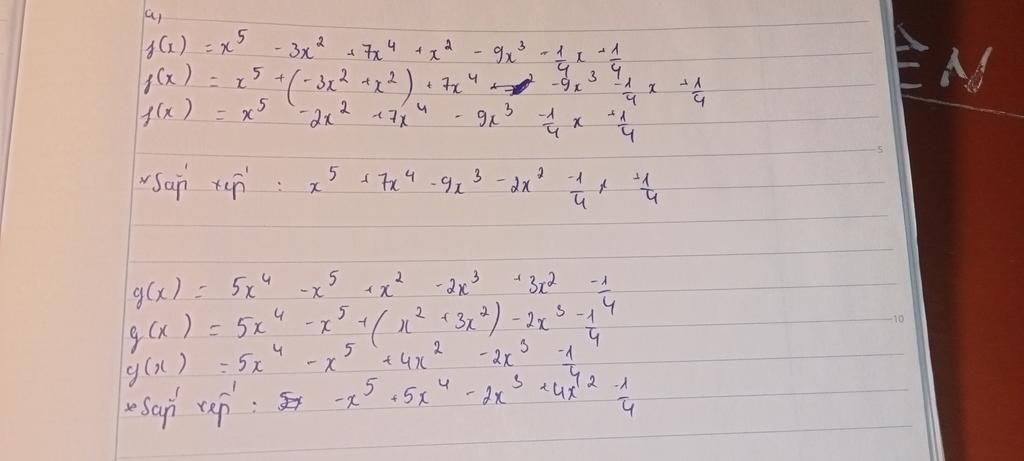 a,
f(x) = x⁵ - 3x² + 7x⁴ + x² - 9x³ - 1/4 x + 1/4
f(x) = x⁵ + (-3x² + x²) + 7x⁴ - 9x³ - 1/4 x + 1/4
f(x) = x⁵ - 2x² + 7x⁴ - 9x³ - 1/4 x + 1/4
* Sắp xếp : x⁵ + 7x⁴ - 9x³ - 2x² - 1/4 x + 1/4
5
g(x) = 5x⁴ - x⁵ + x² - 2x³ + 3x² - 1/4
g(x) = 5x⁴ - x⁵ + (x² + 3x²) - 2x³ - 1/4
10
g(x) = 5x⁴ - x⁵ + 4x² - 2x³ - 1/4
* Sắp xếp : - x⁵ + 5x⁴ - 2x³ + 4x² - 1/4
ÊN